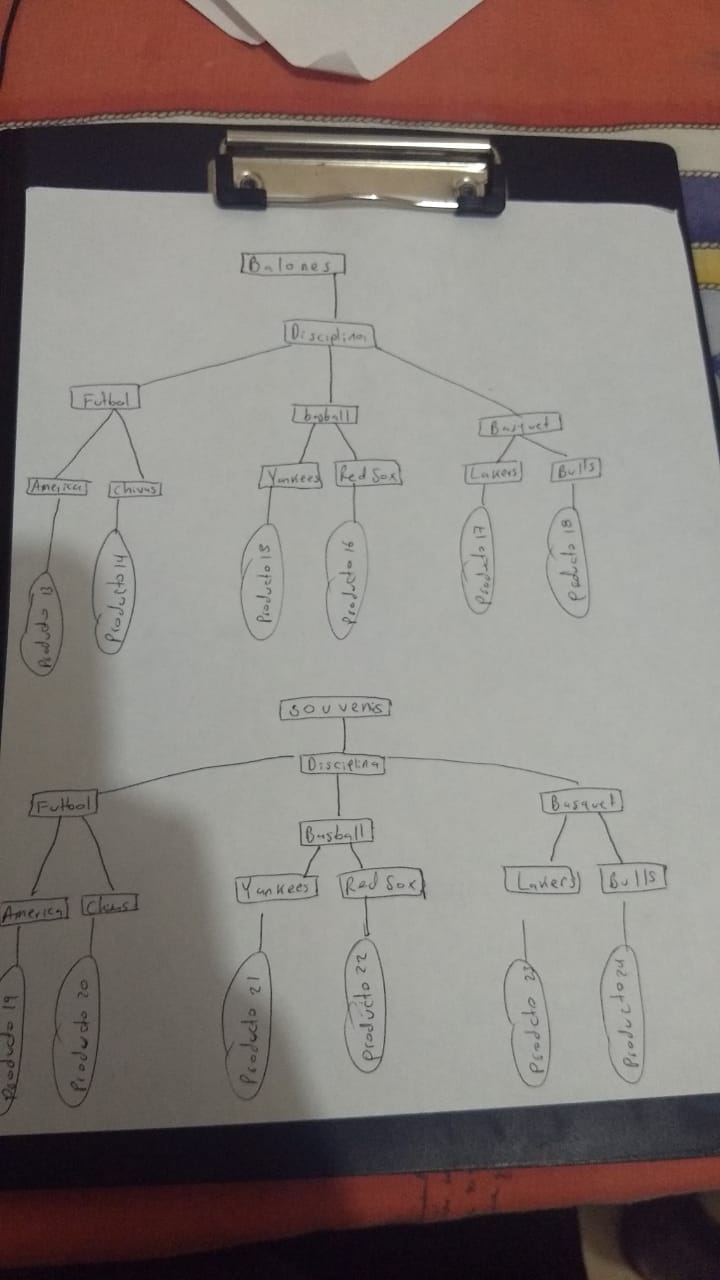 Balones
Disciplina
Futbol
basball
Basquet
America
Chivas
Yankees
Red Sox
Lakers
Bulls
Producto 13
Producto 14
Producto 15
Producto 16
Producto 17
Producto 18
souvenis
Disciplina
Futbol
Basball
Basquet
America
Chivas
Yankees
Red Sox
Lakers
Bulls
Producto 19
Producto 20
Producto 21
Producto 22
Prodcto 23
Producto 24